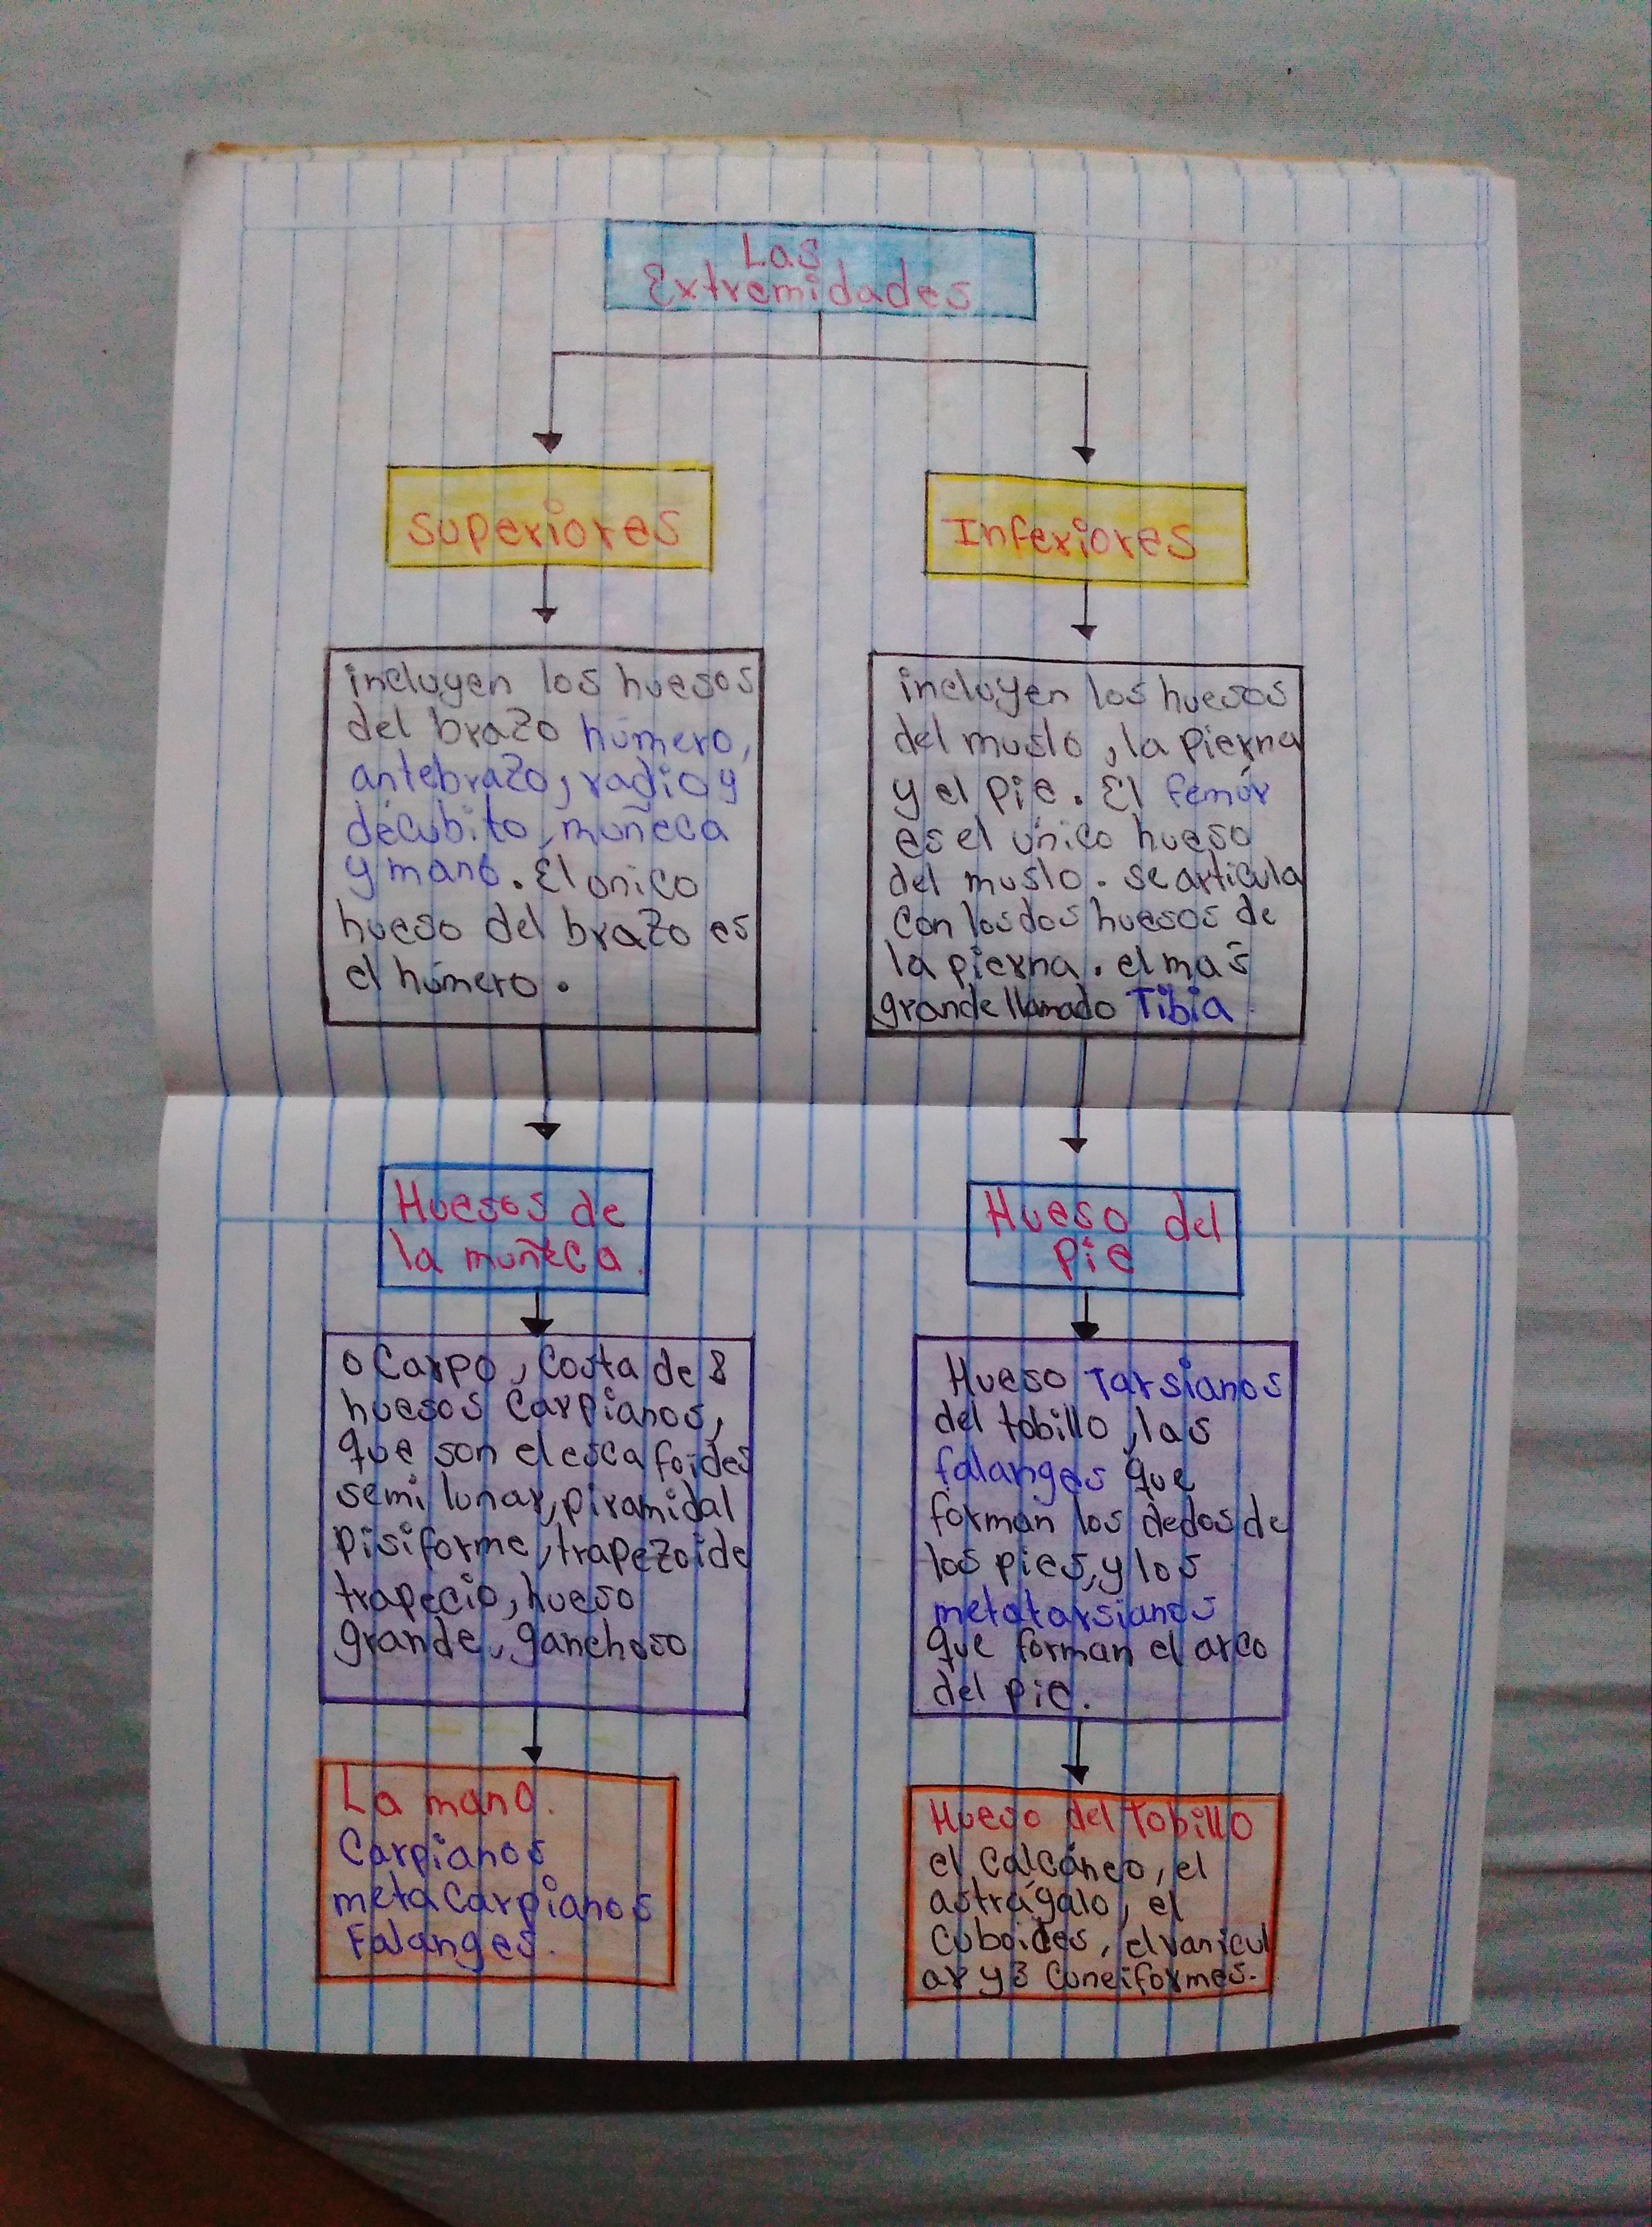 Las
Extremidades
Superiores
Inferiores
incluyen los huesos
del brazo húmero,
antebrazo, radio y
decúbito, muñeca
y mano. El único
hueso del brazo es
el húmero.
incluyen los huesos
del muslo, la pierna
y el pie. El femúr
es el único hueso
del muslo. se articula
con los dos huesos de
la pierna. el mas
grande llamado Tibia.
Huesos de
la muñeca.
o Carpo, Costa de 8
huesos Carpianos,
que son el escafoides
semi lunar, piramidal
pisiforme, trapezoide
trapecio, hueso
grande, ganchoso
La mano.
Carpianos
metacarpianos
Falanges.
Hueso del
pie
Hueso Tarsianos
del tobillo, las
falanges que
forman los dedos de
los pies, y los
metatarsianos
que forman el arco
del pie.
Hueso del Tobillo
el Calcáneo, el
astrágalo, el
Cuboides, el vanicul
ar y 3 Cuneiformes.